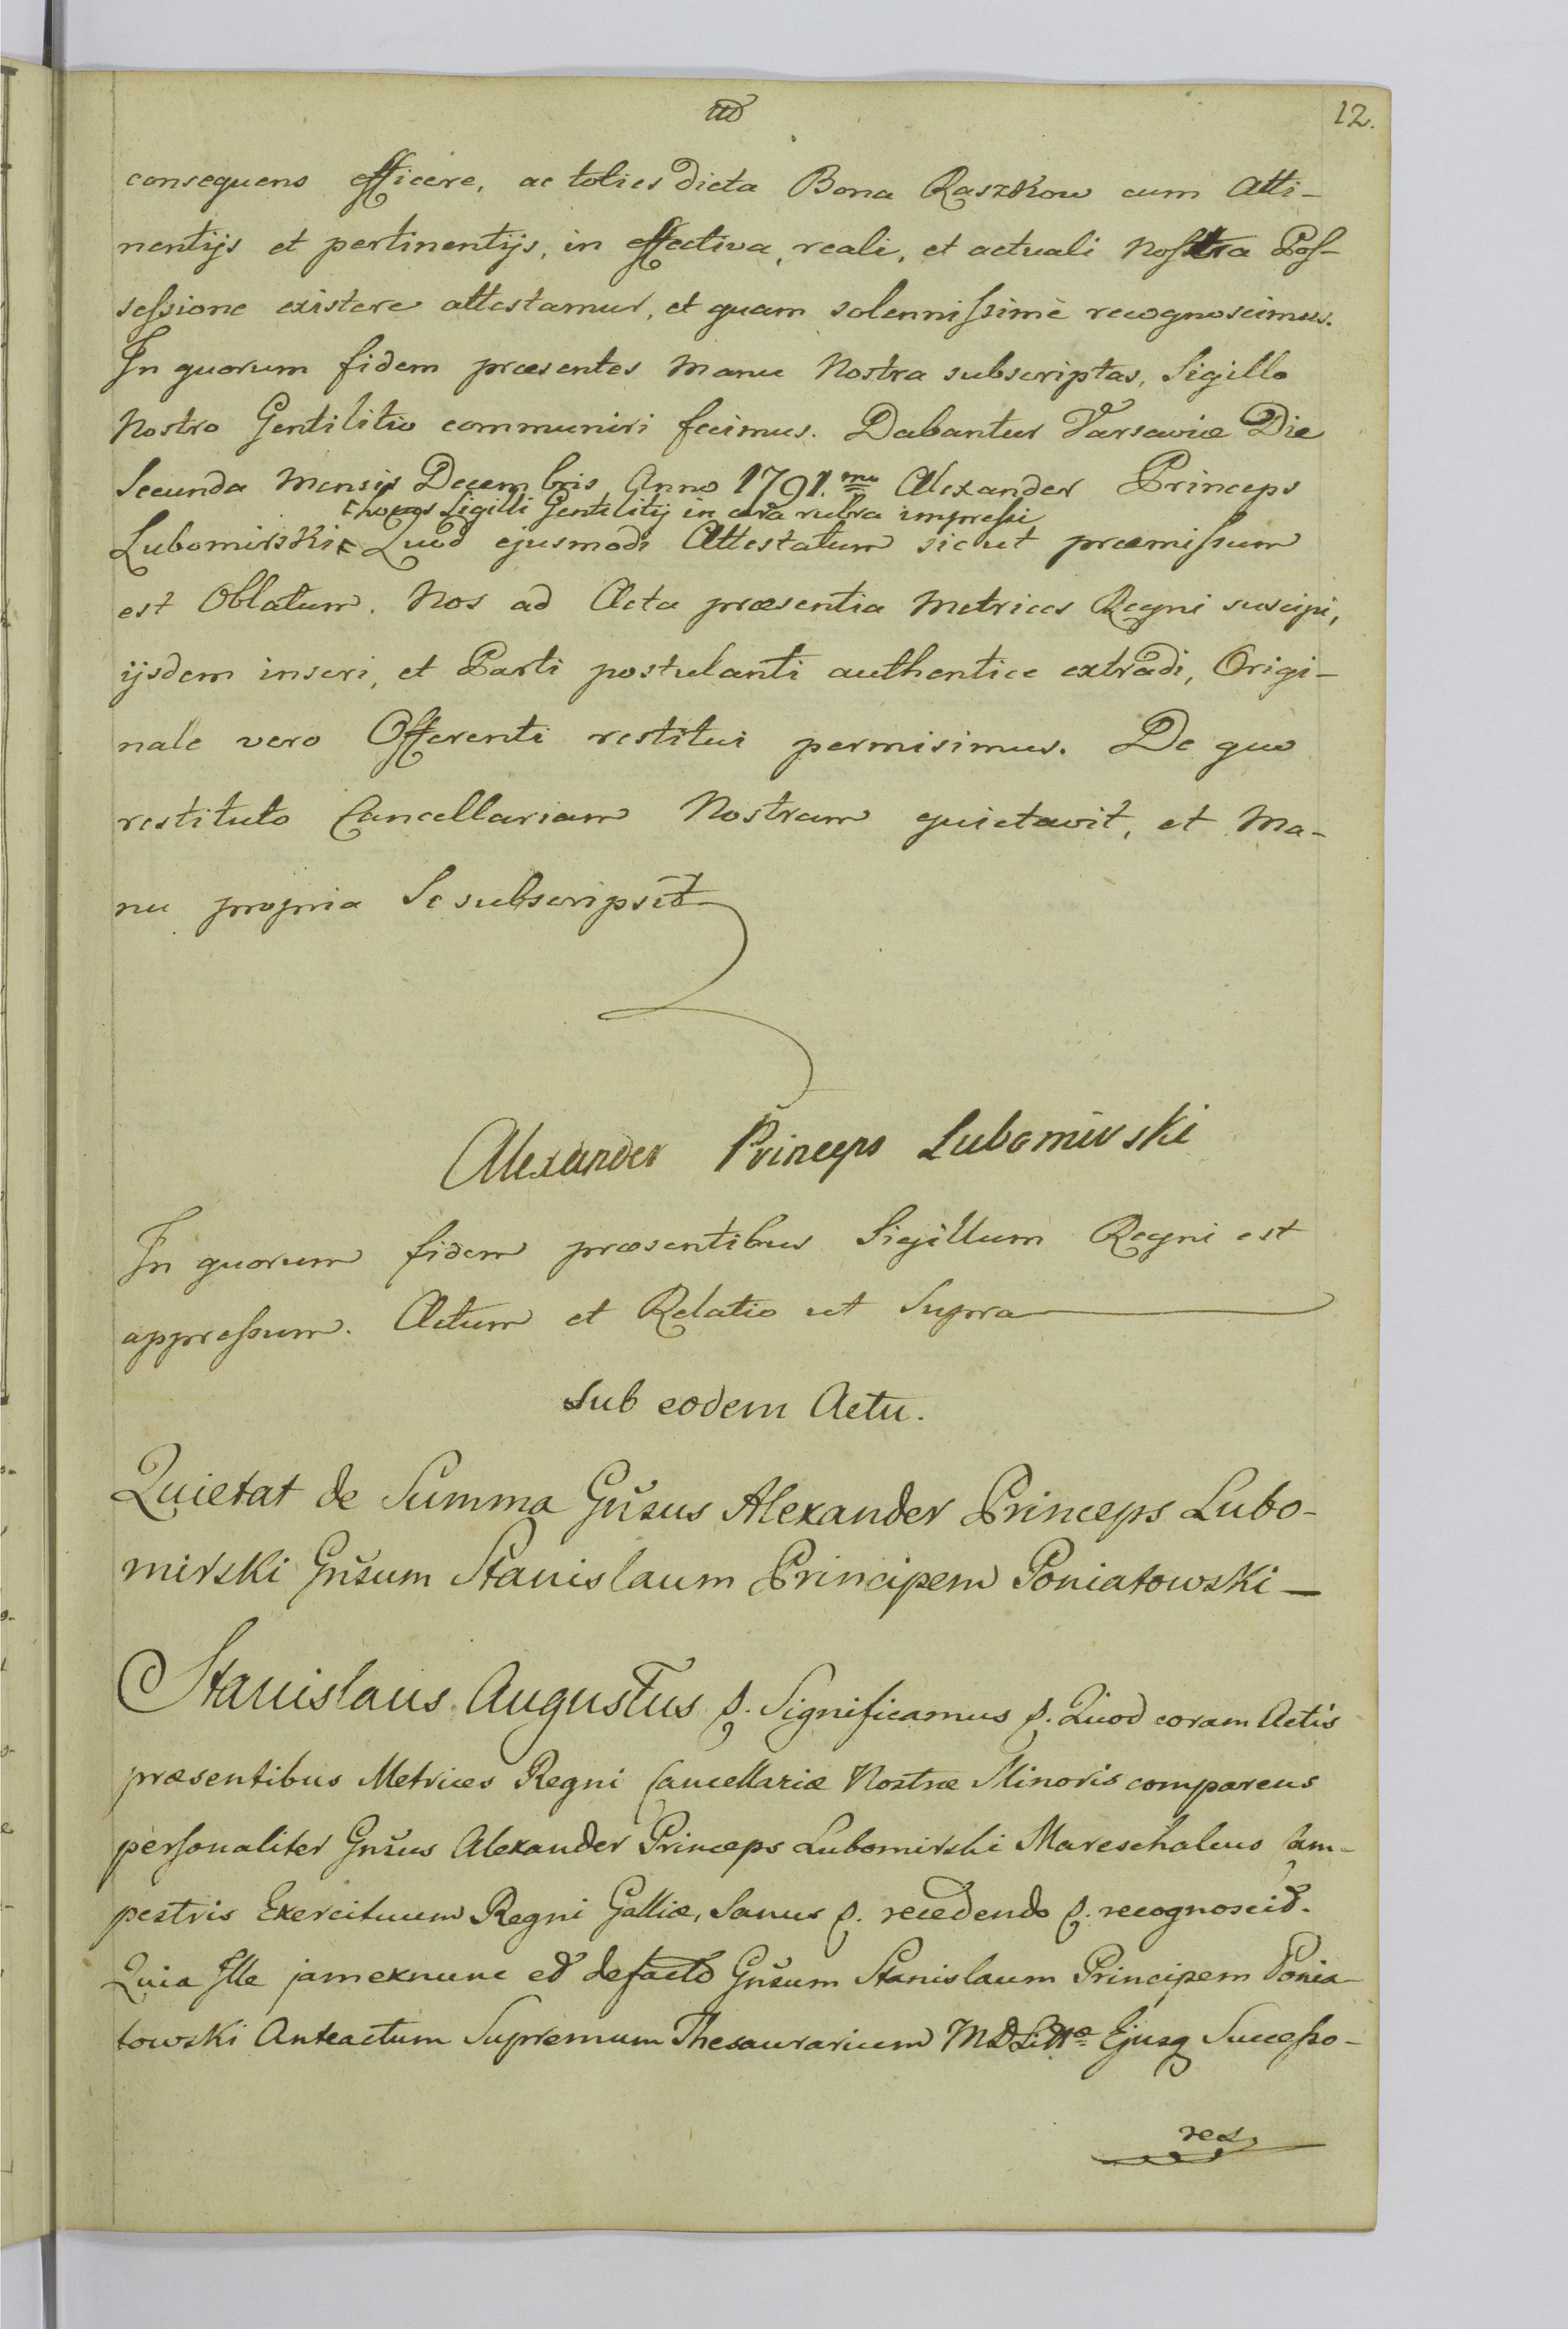 12.
consequens efficere, ac toties dicta Bona Raszkow cum Atti-
nentijs et pertinentijs, in effectiva, reali, et actuali Nostra Pos-
sessione existere attestamur, et quam solennissimè recognoscimus.
In quorum fidem præsentes Manu Nostra subscriptas, Sigillo
Nostro Gentilitio communiri fecimus. Dabantur Varsaviæ Die
Secunda Mensis Decembris Anno 1791.mo Alexander Princeps
Locus Sigilli Gentilitij in cera rubra impressi
Lubomirski Quod ejusmodi Attestatum sicut præmissum
est Oblatum. Nos ad Acta præsentia Metrices Regni suscipi,
ijsdem inseri, et Parti postulanti authentice extradi, Origi-
nale vero Offerenti restitui permisimus. De quo
restituto Cancellariam Nostram quietavit, et Ma-
nu propria Se subscripsit
Alexander Princeps Lubomirski
In quorum fidem præsentibus Sigillum Regni est
appressum. Actum et Relatio ut Supra
Sub eodem Actu.
Quietat de Summa Gñsus Alexander Princeps Lubo-
mirski Gñsum Stanislaum Principem Poniatowski —
Stanislaus Augustus p. Significamus p. Quod coram Actis
præsentibus Metrices Regni Cancellariæ Nostræ Minoris comparens
personaliter Gñsus Alexander Princeps Lubomirski Mareschalcus Cam-
pestris Exercituum Regni Galliæ, Sanus p. recedendo p. recognoscit.
Quia Ille jam exnunc et defacto Gñsum Stanislaum Principem Ponia-
towski Anteactum Supremum Thesaurarium MDLittæ Ejusq Successo-
res